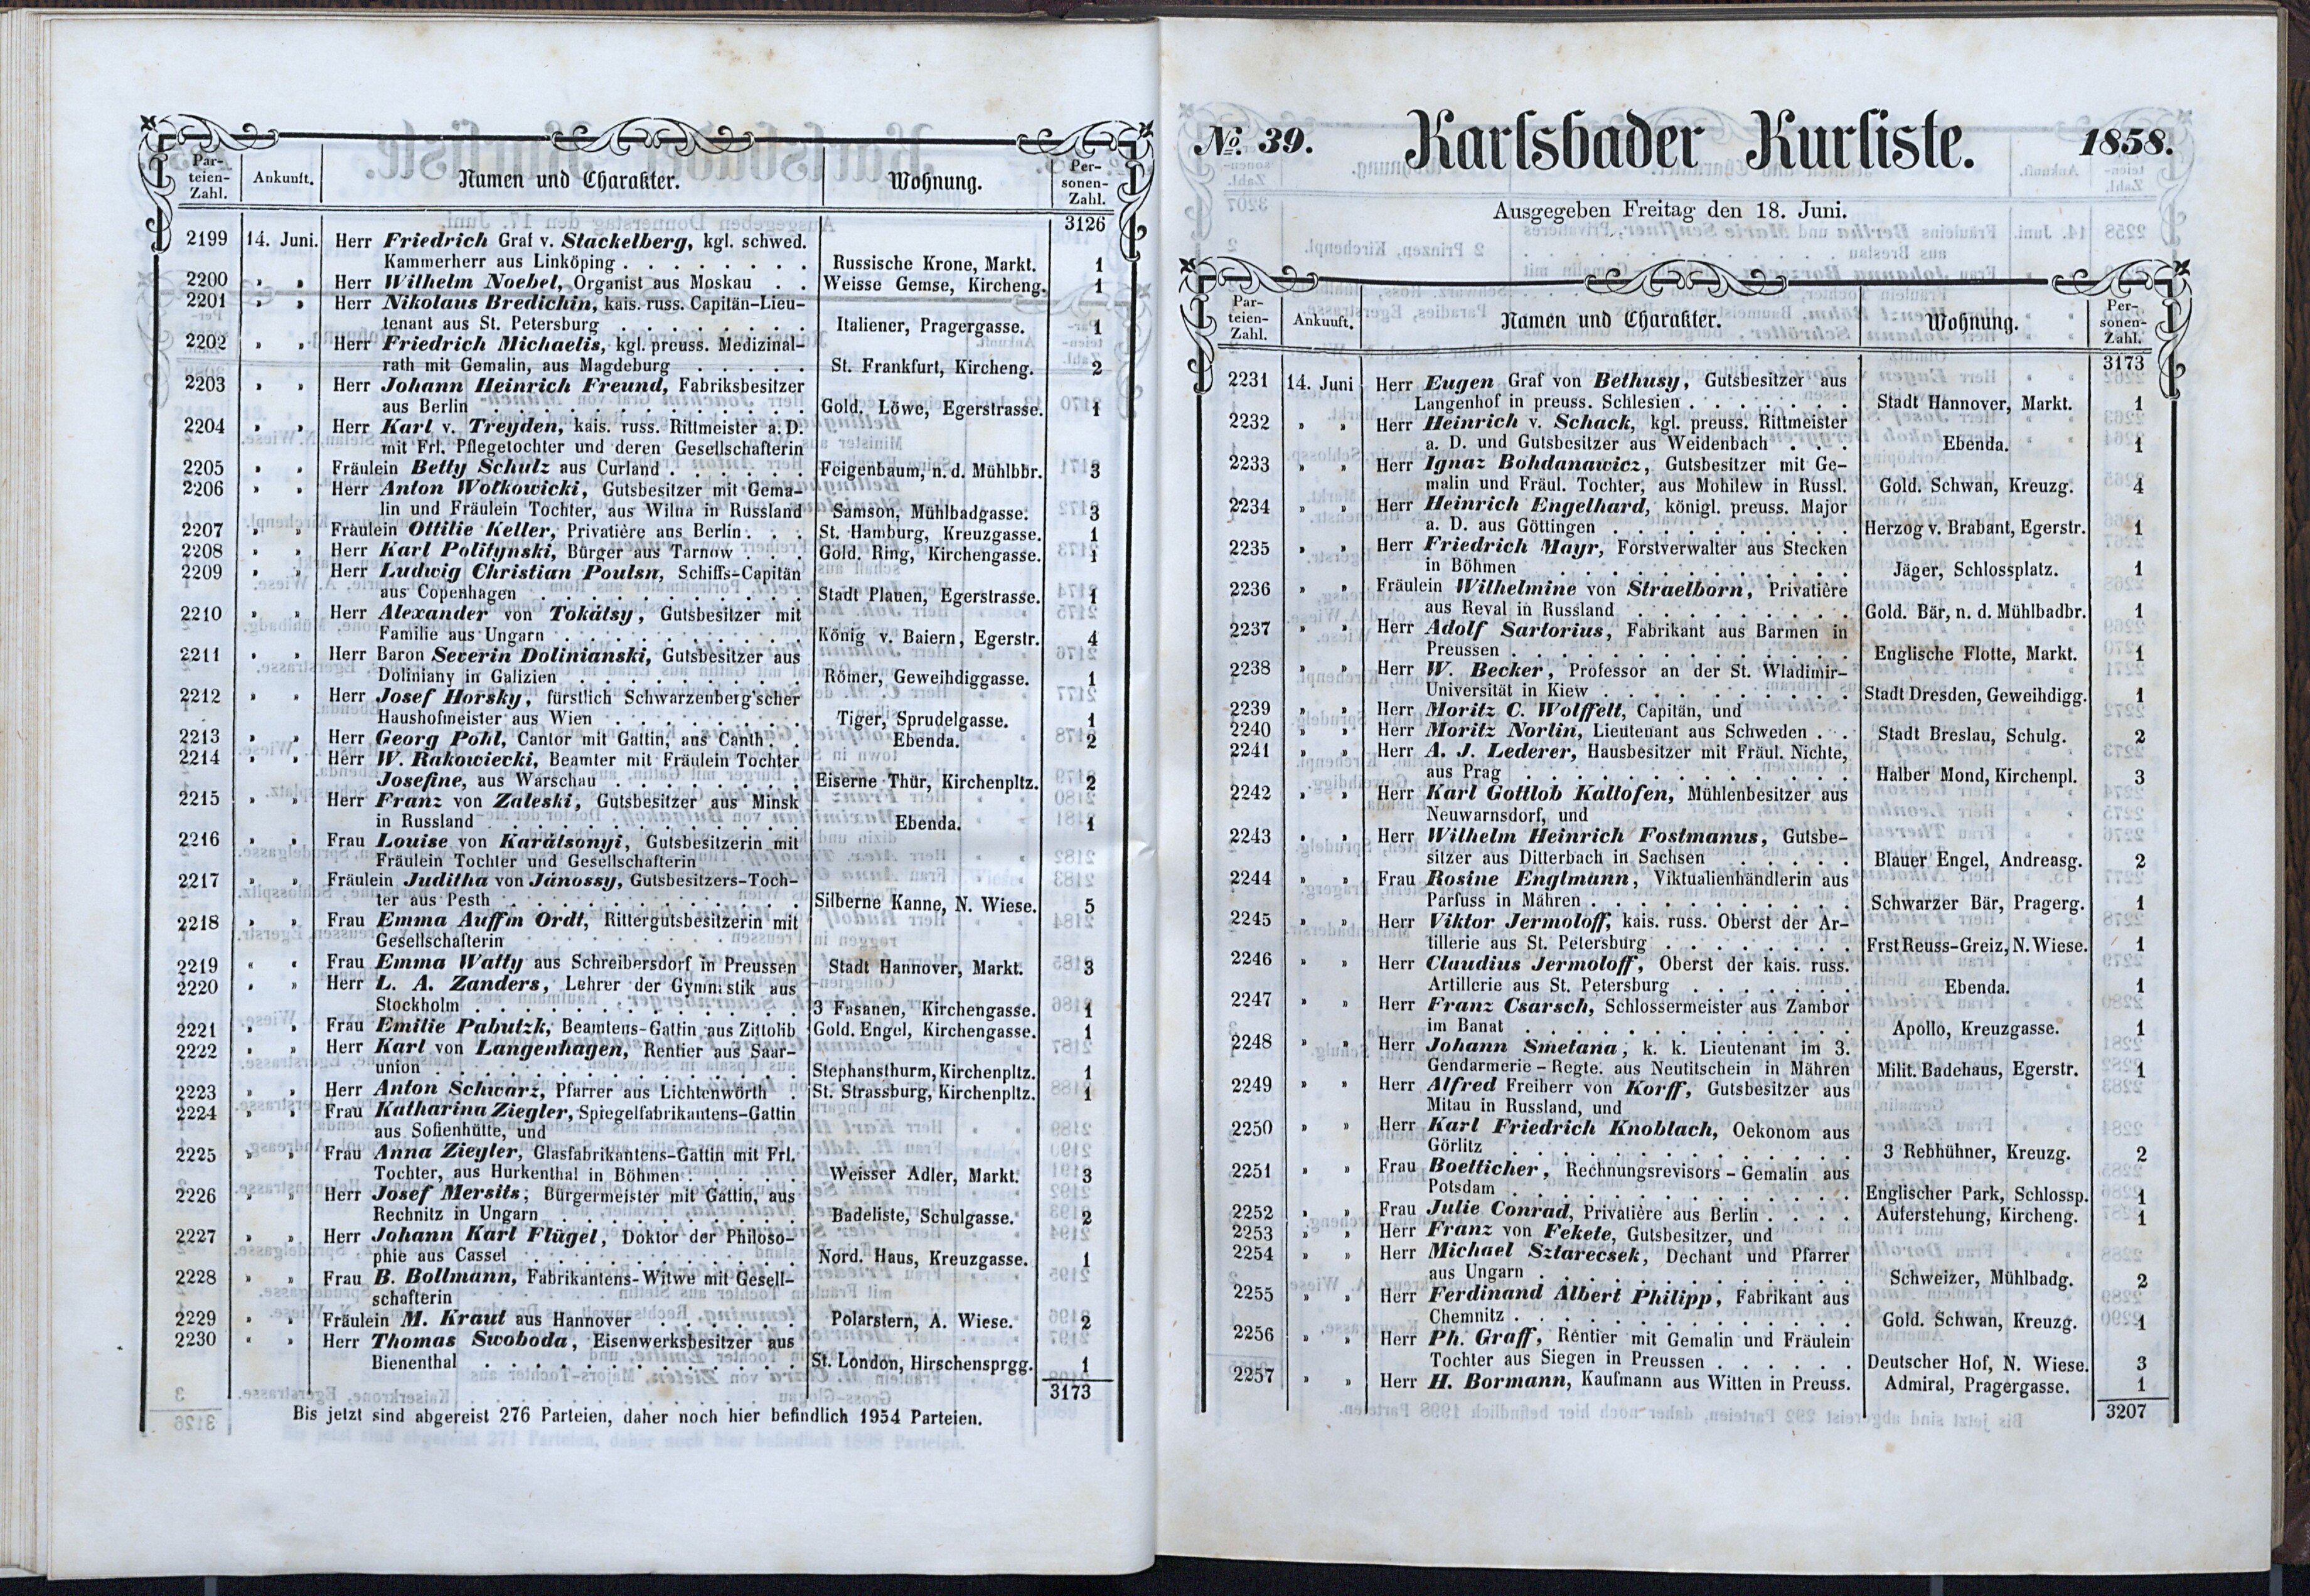 Par-
teien-
Zahl.
Ankunft.
Namen und Charakter.
Wohnung.
Per-
sonen-
Zahl.
3126
2199 14. Juni. Herr Friedrich Graf v. Stackelberg, kgl. schwed.
Kammerherr aus Linköping . . . . . . . . Russische Krone, Markt. 1
2200 » » Herr Wilhelm Noebel, Organist aus Moskau . . Weisse Gemse, Kircheng. 1
2201 » » Herr Nikolaus Bredichin, kais. russ. Capitän-Lieu-
tenant aus St. Petersburg . . . . . . . . Italiener, Pragergasse. 1
2202 » » Herr Friedrich Michaelis, kgl. preuss. Medizinal-
rath mit Gemalin, aus Magdeburg . . . . . St. Frankfurt, Kircheng. 2
2203 » » Herr Johann Heinrich Freund, Fabriksbesitzer
aus Berlin . . . . . . . . . . . . . . Gold. Löwe, Egerstrasse. 1
2204 » » Herr Karl v. Treyden, kais. russ. Rittmeister a. D.
mit Frl. Pflegetochter und deren Gesellschafterin
2205 » » Fräulein Betty Schulz aus Curland . . . . . . Feigenbaum, n. d. Mühlbbr. 3
2206 » » Herr Anton Wolkowicki, Gutsbesitzer mit Gema-
lin und Fräulein Tochter, aus Wilna in Russland Samson, Mühlbadgasse. 3
2207 » » Fräulein Ottilie Keller, Privatière aus Berlin . . . St. Hamburg, Kreuzgasse. 1
2208 » » Herr Karl Politynski, Bürger aus Tarnow . . . Gold. Ring, Kirchengasse. 1
2209 » » Herr Ludwig Christian Poulsn, Schiffs-Capitän
aus Copenhagen . . . . . . . . . . . . Stadt Plauen, Egerstrasse. 1
2210 » » Herr Alexander von Tokálsy, Gutsbesitzer mit
Familie aus Ungarn . . . . . . . . . . . König v. Baiern, Egerstr. 4
2211 » » Herr Baron Severin Dolinianski, Gutsbesitzer aus
Doliniany in Galizien . . . . . . . . . . Römer, Geweihdiggasse. 1
2212 » » Herr Josef Horsky, fürstlich Schwarzenberg'scher
Haushofmeister aus Wien . . . . . . . . . Tiger, Sprudelgasse. 1
2213 » » Herr Georg Pohl, Cantor mit Gattin, aus Canth . . Ebenda. 2
2214 » » Herr W. Rakowiecki, Beamter mit Fräulein Tochter
Josefine, aus Warschau . . . . . . . . . Eiserne Thür, Kirchenpltz. 2
2215 » » Herr Franz von Zaleski, Gutsbesitzer aus Minsk
in Russland . . . . . . . . . . . . . . Ebenda. 1
2216 » » Frau Louise von Karátsonyi, Gutsbesitzerin mit
Fräulein Tochter und Gesellschafterin
2217 » » Fräulein Juditha von Jánossy, Gutsbesitzers-Toch-
ter aus Pesth . . . . . . . . . . . . . Silberne Kanne, N. Wiese. 5
2218 » » Frau Emma Auffm Ordt, Rittergutsbesitzerin mit
Gesellschafterin
2219 « « Frau Emma Watty aus Schreibersdorf in Preussen Stadt Hannover, Markt. 3
2220 » » Herr L. A. Zanders, Lehrer der Gymnastik aus
Stockholm . . . . . . . . . . . . . . 3 Fasanen, Kirchengasse. 1
2221 » » Frau Emilie Pabutzk, Beamtens-Gattin aus Zittolib Gold. Engel, Kirchengasse. 1
2222 » » Herr Karl von Langenhagen, Rentier aus Saar-
union . . . . . . . . . . . . . . . . Stephansthurm, Kirchenpltz. 1
2223 » » Herr Anton Schwarz, Pfarrer aus Lichtenwörth . St. Strassburg, Kirchenpltz. 1
2224 » » Frau Katharina Ziegler, Spiegelfabrikantens-Gattin
aus Sofienhütte, und
2225 » » Frau Anna Ziegler, Glasfabrikantens-Gattin mit Frl.
Tochter, aus Hurkenthal in Böhmen . . . . . Weisser Adler, Markt. 3
2226 » » Herr Josef Mersits, Bürgermeister mit Gattin, aus
Rechnitz in Ungarn . . . . . . . . . . . Badeliste, Schulgasse. 2
2227 » » Herr Johann Karl Flügel, Doktor der Philoso-
phie aus Cassel . . . . . . . . . . . . Nord. Haus, Kreuzgasse. 1
2228 » » Frau B. Bollmann, Fabrikantens-Witwe mit Gesell-
schafterin
2229 » » Fräulein M. Kraut aus Hannover . . . . . . Polarstern, A. Wiese. 2
2230 « » Herr Thomas Swoboda, Eisenwerksbesitzer aus
Bienenthal . . . . . . . . . . . . . . St. London, Hirschensprgg. 1
3173
Bis jetzt sind abgereist 276 Parteien, daher noch hier befindlich 1954 Parteien.
No. 39. Karlsbader Kurliste. 1858.
Ausgegeben Freitag den 18. Juni.
Par-
teien-
Zahl.
Ankunft.
Namen und Charakter.
Wohnung.
Per-
sonen-
Zahl.
3173
2231 14. Juni Herr Eugen Graf von Bethusy, Gutsbesitzer aus
Langenhof in preuss. Schlesien . . . . . . . Stadt Hannover, Markt. 1
2232 » » Herr Heinrich v. Schack, kgl. preuss. Rittmeister
a. D. und Gutsbesitzer aus Weidenbach . . . Ebenda. 1
2233 » » Herr Ignaz Bohdanawicz, Gutsbesitzer mit Ge-
malin und Fräul. Tochter, aus Mohilew in Russl. Gold. Schwan, Kreuzg. 4
2234 » » Herr Heinrich Engelhard, königl. preuss. Major
a. D. aus Göttingen . . . . . . . . . . . Herzog v. Brabant, Egerstr. 1
2235 » » Herr Friedrich Mayr, Forstverwalter aus Stecken
in Böhmen . . . . . . . . . . . . . . Jäger, Schlossplatz. 1
2236 » » Fräulein Wilhelmine von Straelborn, Privatière
aus Reval in Russland . . . . . . . . . . Gold. Bär, n. d. Mühlbadbr. 1
2237 » » Herr Adolf Sartorius, Fabrikant aus Barmen in
Preussen . . . . . . . . . . . . . . . Englische Flotte, Markt. 1
2238 » » Herr W. Becker, Professor an der St. Wladimir-
Universität in Kiew . . . . . . . . . . . Stadt Dresden, Geweihdigg. 1
2239 » » Herr Moritz C. Wolffelt, Capitän, und
2240 » » Herr Moritz Norlin, Lieutenant aus Schweden . . Stadt Breslau, Schulg. 2
2241 » » Herr A. J. Lederer, Hausbesitzer mit Fräul. Nichte,
aus Prag . . . . . . . . . . . . . . . Halber Mond, Kirchenpl. 3
2242 » » Herr Karl Gottlob Kaltofen, Mühlenbesitzer aus
Neuwarnsdorf, und
2243 » » Herr Wilhelm Heinrich Fostmanus, Gutsbe-
sitzer aus Ditterbach in Sachsen . . . . Blauer Engel, Andreasg. 2
2244 » » Frau Rosine Englmann, Viktualienhändlerin aus
Parfuss in Mähren . . . . . . . . . . . Schwarzer Bär, Pragerg. 1
2245 » » Herr Viktor Jermoloff, kais. russ. Oberst der Ar-
tillerie aus St. Petersburg . . . . . . . . Frst Reuss-Greiz, N. Wiese. 1
2246 » » Herr Claudius Jermoloff, Oberst der kais. russ.
Artillerie aus St. Petersburg . . . . . . . Ebenda. 1
2247 » » Herr Franz Csarsch, Schlossermeister aus Zambor
im Banat . . . . . . . . . . . . . . . Apollo, Kreuzgasse. 1
2248 » » Herr Johann Smetana, k. k. Lieutenant im 3.
Gendarmerie - Regte. aus Neutitschein in Mähren Milit. Badehaus, Egerstr. 1
2249 » » Herr Alfred Freiherr von Korff, Gutsbesitzer aus
Mitau in Russland, und
2250 » » Herr Karl Friedrich Knoblach, Oekonom aus
Görlitz . . . . . . . . . . . . . . . . 3 Rebhühner, Kreuzg. 2
2251 » » Frau Boetticher, Rechnungsrevisors - Gemalin aus
Potsdam . . . . . . . . . . . . . . . Englischer Park, Schlossp. 1
2252 » » Frau Julie Conrad, Privatière aus Berlin . . . . Auferstehung, Kircheng. 1
2253 » » Herr Franz von Fekete, Gutsbesitzer, und
2254 » » Herr Michael Sztarecsek, Dechant und Pfarrer
aus Ungarn . . . . . . . . . . . . . . Schweizer, Mühlbadg. 2
2255 » » Herr Ferdinand Albert Philipp, Fabrikant aus
Chemnitz . . . . . . . . . . . . . . . Gold. Schwan, Kreuzg. 1
2256 » » Herr Ph. Graff, Rentier mit Gemalin und Fräulein
Tochter aus Siegen in Preussen . . . . . . Deutscher Hof, N. Wiese. 3
2257 » » Herr H. Bormann, Kaufmann aus Witten in Preuss. Admiral, Pragergasse. 1
3207